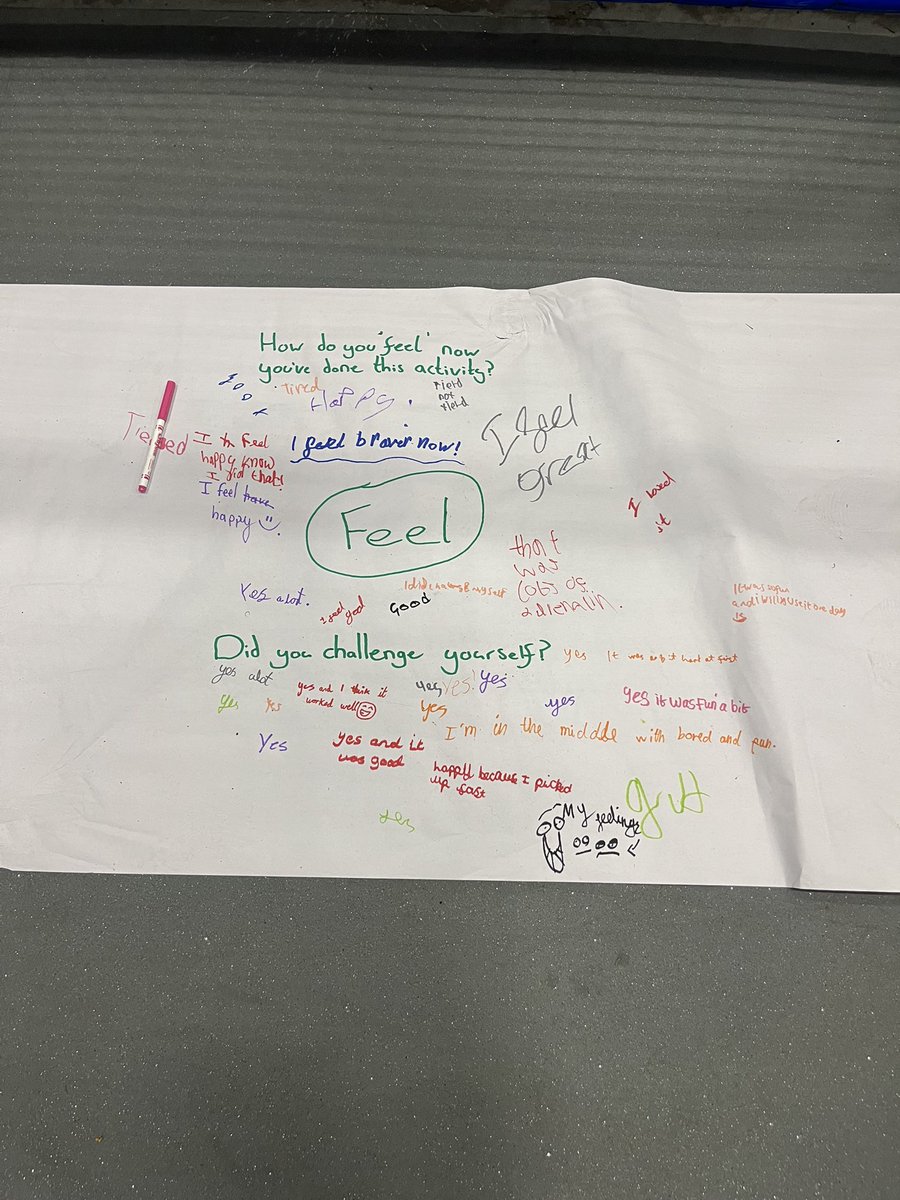 How do you 'feel' now
you've done this activity?
Tired
Happy.
Tierd
not
tierd
I feel
great
Tiered
I feel
happy know
I did that!
I feel braver now!
I feel
happy
Feel
I loved
it
that
was
lobs of
adrenalin.
Yes alot.
I feel good
Good
It was so fun
and i will use it one day
Did you challenge yourself?
yes It was a bit hard at first
yes alot
yes
yes!
yes
yes
yes
yes and I think it
worked well
yes
yes
yes it was fun a bit
I'm in the middle with bored and
Yes
yes and it
was good
because I picked
up fast
yes
My feelings